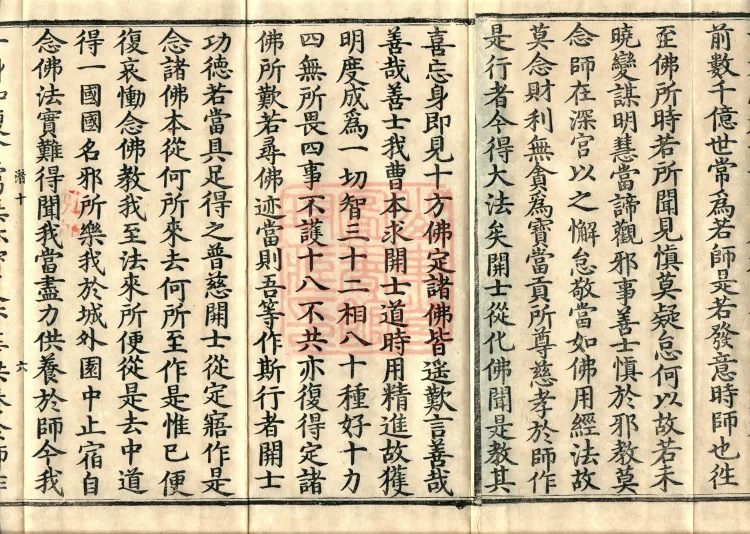 前數千億世常爲若師是若發意時師也徃
至佛所時若所聞見慎莫疑怠何以故若未
曉變謀明慧當諦觀邪事善士慎於邪教莫
念師在深宫以之懈怠敬當如佛用經法故
莫念財利無貪爲寶當貢所尊慈孝於師作
是行者今得大法矣開士從化佛聞是教其
喜忘身即見十方佛定諸佛皆遥歎言善哉
善哉善士我曹本求開士道時用精進故獲
明度成爲一切智三十二相八十種好十力
四無所畏四事不護十八不共亦復得定諸
佛所歎若尋佛迹當則吾等作斯行者開士
功德若當具足得之普慈開士從定寤作是
念諸佛本從何所來去何所至作是惟已便
復哀慟念佛教我至法來所便從是去中道
得一國國名邪所樂我於城外園中止宿自
念佛法實難得聞我當盡力供養於師今我
潜十
六